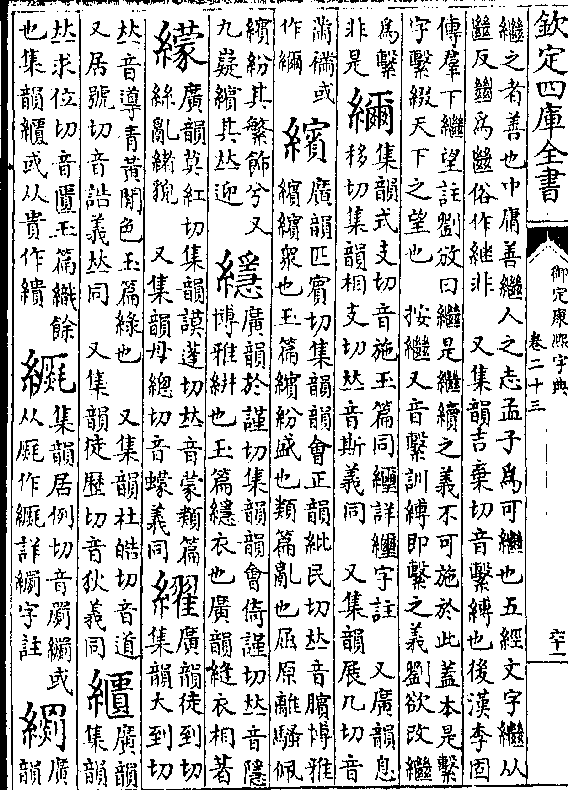 欽定四庫全書
御定康熙字典
卷二十三
六十一
繼之者善也中庸善繼人之志孟子爲可繼也五經文字繼从
𢇍反𢇍爲繼俗作継非　又集韻吉棄切音繫縛也後漢李固
傳羣下繼望註劉攽曰繼是繼續之義不可施於此蓋本是繫
字繫綴天下之望也　按繼又音繫訓縛即繫之義劉欲改繼
爲繫
非是　纚集韻式支切音施玉篇同䌳詳䌳字註　又廣韻息
移切集韻相支切𠀤音斯義同　又集韻展几切音
黹襧或
作襧　繽廣韻匹賓切集韻韻會正韻紕民切𠀤音臏博雅
繽繽衆也玉篇繽紛盛也類篇亂也屈原離騷佩
繽紛其繁飾兮又
九嶷繽其𠀤迎　繵廣韻於謹切集韻韻會倚謹切𠀤音隱
博雅絣也玉篇縫衣也廣韻縫衣相著
䑃廣韻莫紅切集韻謨蓬切𠀤音蒙類篇
絲亂緒貌　又集韻母總切音蠓義同　䌦廣韻徒到切
集韻大到切
𠀤音導青黃閒色玉篇緣也　又集韻杜皓切音道
又居號切音誥義𠀤同　又集韻徒歷切音狄義同　繢廣韻
集韻
𠀤求位切音匱玉篇織餘
也集韻繢或从貴作繢　𦇧集韻居例切音罽繝或
从𠪚作𦇧詳繝字註　繝廣
韻